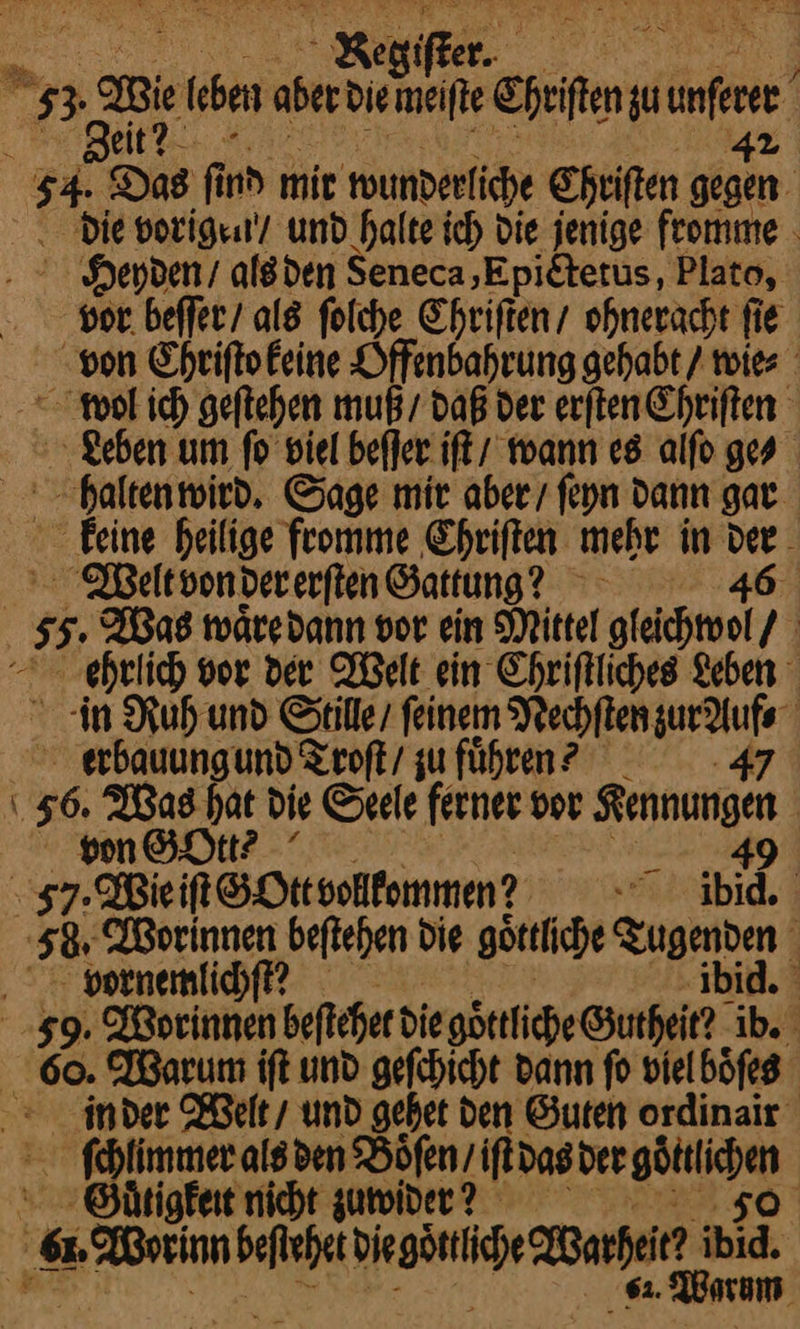 Regiſter.
53. Wie leben aber die meiſte Chriſten zu unſerer
Zeit? 42
54. Das ſind mir wunderliche Chriſten gegen
die vorigen/ und halte ich die jenige fromme
Heyden/ als den Seneca, Epictetus, Plato,
vor beſſer/ als ſolche Chriſten/ ohneracht ſie
von Chriſto keine Offenbahrung gehabt/ wie⸗
wol ich geſtehen muß/ daß der erſten Chriſten
Leben um ſo viel beſſer iſt/ wann es alſo ge⸗
halten wird. Sage mir aber/ ſeyn dann gar
keine heilige fromme Chriſten mehr in der
Welt von der erſten Gattung? 46
55. Was waͤre dann vor ein Mittel gleichwol/
ehrlich vor der Welt ein Chriſtliches Leben
in Ruh und Stille/ ſeinem Nechſten zur Auf⸗
erbauung und Troſt/ zu fuͤhren? 47
56. Was hat die Seele ferner vor Kennungen
von GOtt? 49
57. Wie iſt GOtt vollkommen? ibid.
58. Worinnen beſtehen die goͤttliche Tugenden
vornemlichſt? ibid.
59. Worinnen beſtehet die goͤttliche Gutheit? ib.
60. Warum iſt und geſchicht dann ſo viel boͤſes
in der Welt/ und gehet den Guten ordinair
ſchlimmer als den Boͤſen/ iſt das der goͤttlichen
Guͤtigkeit nicht zuwider? 50
61. Worinn beſtehet die goͤttliche Warheit? ibid.
62. Warum